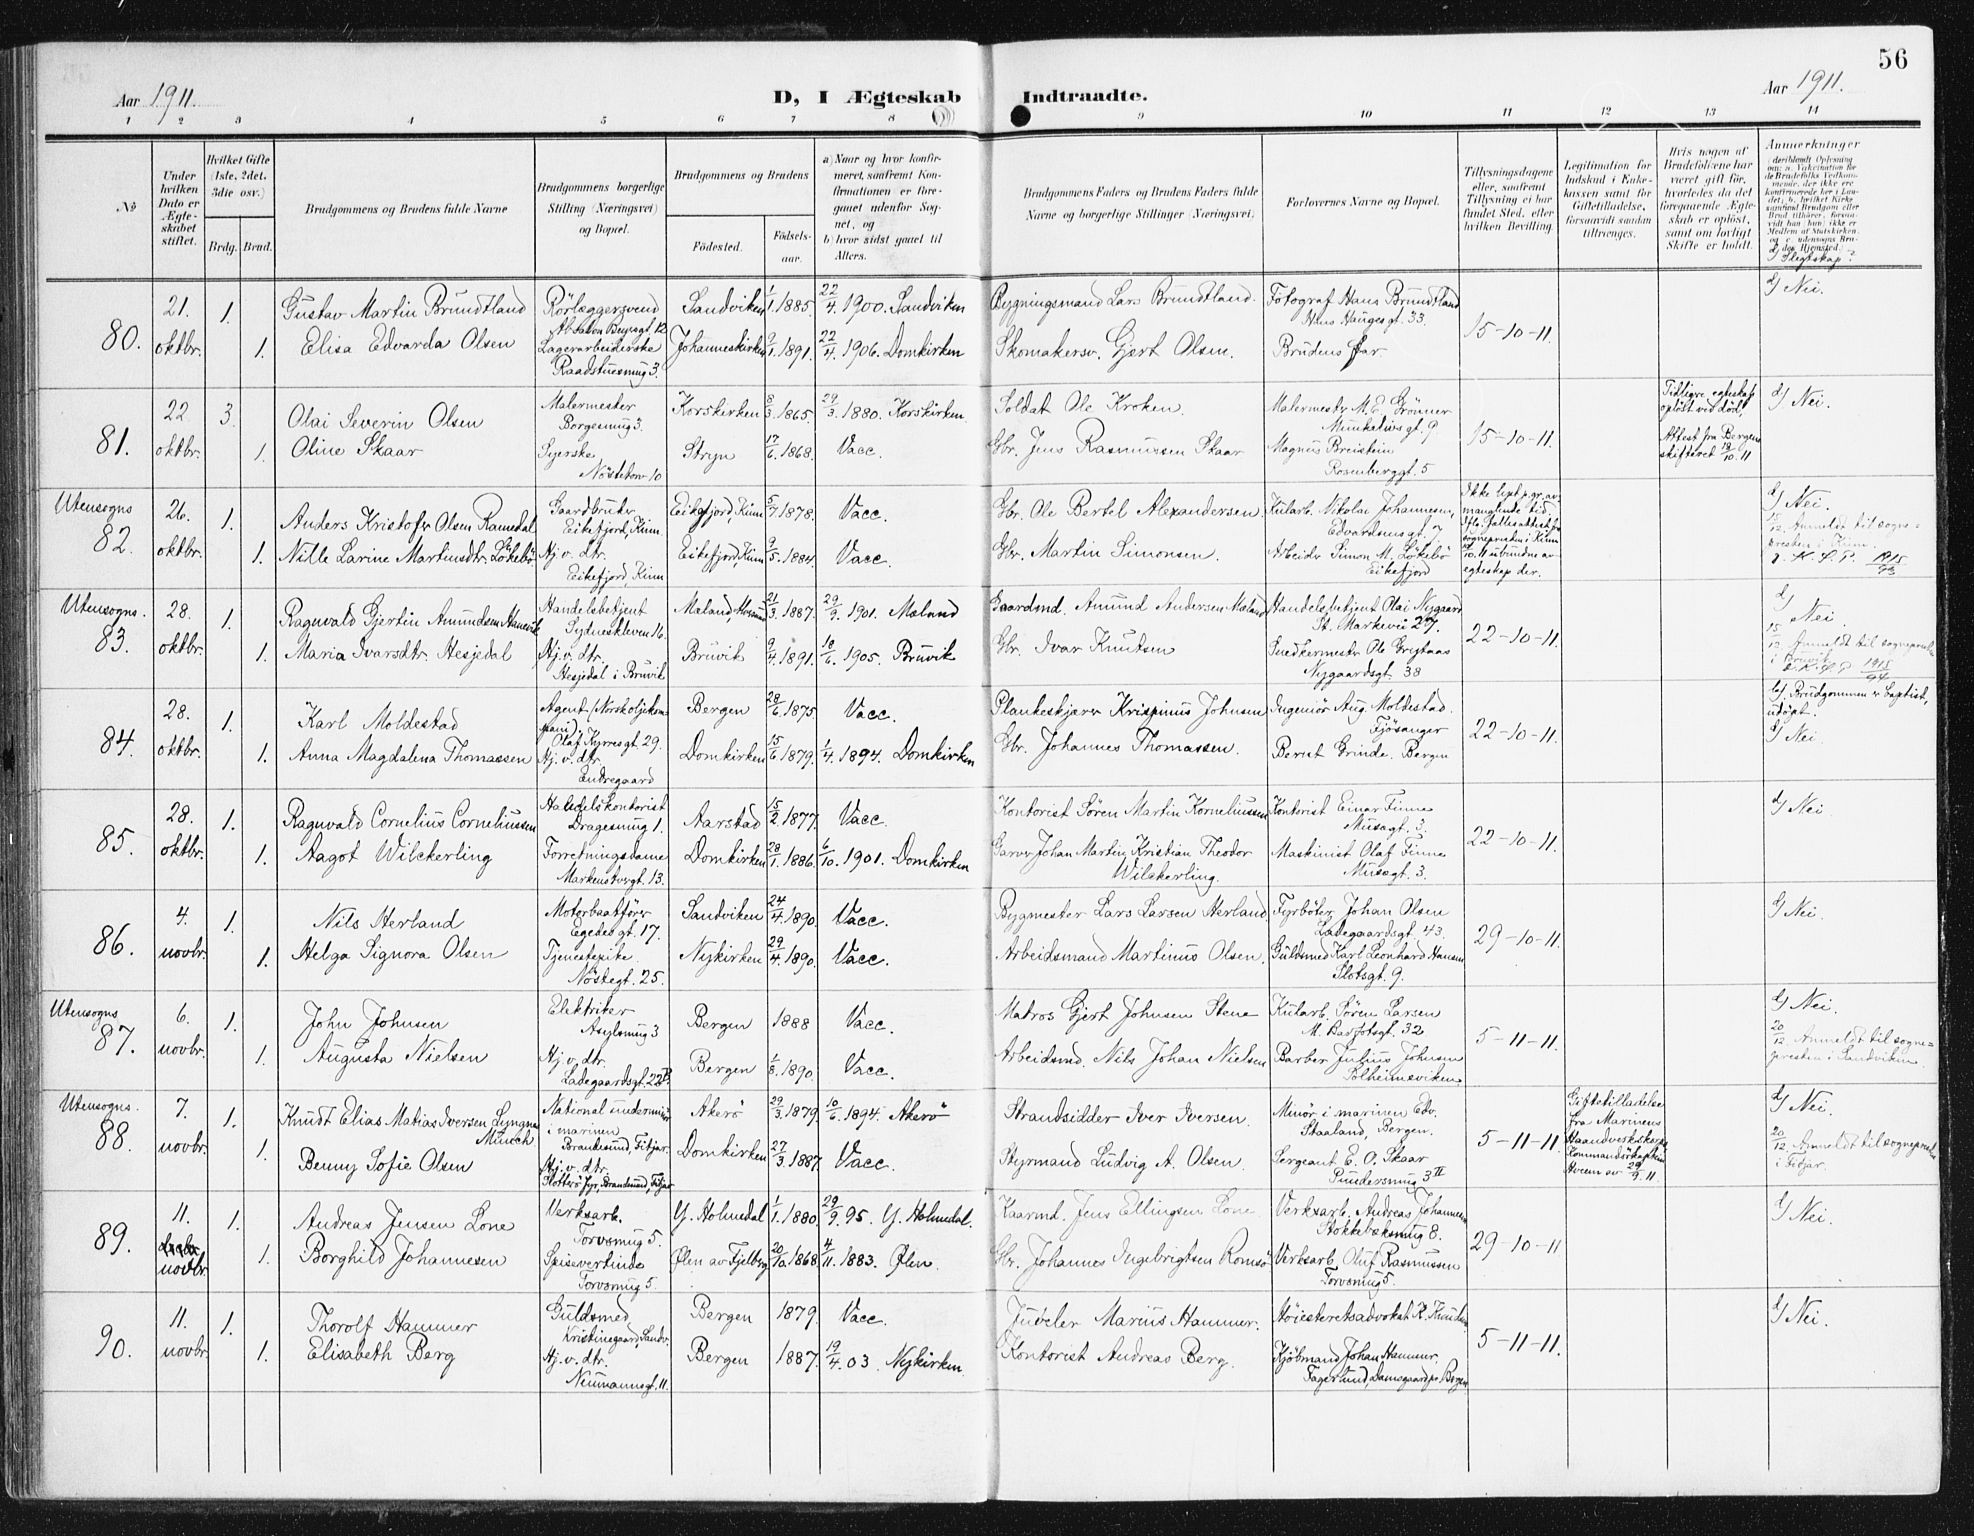 56
Aar 1911.
D, I Ægteskab Indtraadte.
Aar 1911.
1 2 3 4 5 6 7 8 9 10 11 12 13 14
No
Under hvilken Dato er Ægteskabet stiftet.
Hvilket Gifte (1ste, 2det, 3die osv.)
Brdg. Brud.
Brudgommens og Brudens fulde Navne
Brudgommens borgerlige Stilling (Næringsvei) og Bopæl.
Brudgommens og Brudens
Födested.
Födselsaar.
a) Naar og hvor konfirmeret, samfremt Konfirmationen er foregaaet udenfor Sognet, og
b) hvor sidst gaaet til Alters.
Brudgommens Faders og Brudens Faders fulde Navne og borgerlige Stillinger (Næringsvei).
Forlovernes Navne og Bopæl.
Tillysningsdagene eller, samfremt Tillysning ei har fundet Sted, efter hvilken Bevilling.
Legitimation for Indskud i Enkekassen samt for Giftetilladelse, forsaavidt saadan tiltrænges.
Hvis nogen af Brudefolkene har været gift för, hvorledes da det foregaaende Ægteskab er oplöst, samt om lovligt Skifte er holdt.
Anmerkninger
d) Slegtskap?
80. 21. oktbr. 1. 1.
Gustav Martin Brundtland
Elisa Edvarda Olsen
Rörlæggersvend
Absalon Beyersgt. 12
Lagerarbeiderske
Raadstuesmug 3.
Sandviken 1/1. 1885. 22/4. 1900. Sandviken
Johanneskirken 9/1. 1891. 22/4. 1906. Domkirken
Bygningsmand Lars Brundtland.
Skomakersv. Gjert Olsen.
Fotograf Hans Brundtland
Hans Haugesgt. 33.
Brudens Far.
15-10-11.
d/ Nei.
81. 22 oktbr. 3. 1.
Olai Severin Olsen
Oline Skaar
Malermester
Borgesmug 3.
Syerske
Nöstetorv 10
Korskirken 8/3. 1865. 29/3. 1880. Korskirken.
Stryn 17/6. 1868. Vacc.
Soldat Ole Kroken.
Gbr. Jens Rasmussen Skaar
Malermestr M. E. Grönner
Munkalivsgt. 9
Magnus Breistein
Rosenberggt. 5
15-10-11.
Tidligre egteskap oplöst ved död,
Attest fra Bergens skifteret 19/10. 11
d/ Nei.
Utensogns
82. 26. oktbr. 1. 1.
Anders Kristofer Olsen Ramsdal
Nille Larine Martinsdtr. Lökebö
Gaardbruker
Eikefjord, Kinn
Hj. v. dtr.
Eikefjord, Kinn
Eikefjord, Kinn 5/7. 1878. Vacc.
Eikefjord, Kinn 9/5. 1884. Vacc.
Gbr. Ole Bertel Alexandersen
Gbr. Martin Simonsen.
Kularb. Nikolai Johannesen,
Edvardsensgt. 7
Arbeidr Simon M. Lökebö
Eikefjord
Ikke lyst p. gr. av manglende tid.
egteskap der.
d/ Nei.
15/12. Anmeldt til sognepresten i Kinn.
1915/93
Utensogns.
83. 28. oktbr. 1. 1.
Ragnvald Gjertin Amundsen Hanevik
Maria Ivarsdtr. Hesjedal
Handelsbetjent
Sydneskleven 16.
Hj. v. dtr.
Hesjedal i Bruvik
Mæland, Hosanger 21/3. 1887. 29/9. 1901. Mæland
Bruvik 9/4. 1891. 18/6. 1905. Bruvik
Gaardmd. Amund Andersen Mæland
Gbr. Ivar Knutsen
Handelsbetjent Olai Nygaard
St. Markevei 27.
Snedkermestr Ole Gregtaas
Nygaardsgt. 38
22-10-11.
d/ Nei.
15/12. Anmeldt til sognepresten i Bruvik
1915/94
84. 28. oktbr. 1. 1.
Karl Moldestad
Anna Magdalena Thomassen
Agent (Norsk oljekompani),
Olaf Kyrresgt. 29.
Hj. v. dtr.
Endregaard
Bergen 28/6. 1875. Vacc.
Domkirken 15/6. 1879. 1/4. 1894. Domkirken
Plankeskjærer Krispinus Johnsen
Gbr. Johannes Thomassen.
Ingeniör Aug. Moldestad.
Fjösanger
Bernt Grinde. Bergen
22-10-11.
b/ Brudgommen er baptist, udöpt.
d/ Nei.
85. 28. oktbr. 1. 1.
Ragnvald Cornelius Corneliussen
Aagot Wilckerling
Handelskontorist
Dragesmug 1.
Forretningsdame
Markensborggt. 13.
Aarstad 15/2. 1877. Vacc.
Domkirken 28/1. 1886. 6/10. 1901. Domkirken
Kontorist Sören Martin Korneliussen
Garver Johan Martin Kristian Theodor Wilckerling.
Kontorist Einar Finne
Museegt. 3.
Maskinist Olaf Finne
Museegt. 3.
22-10-11.
d/ Nei
86. 4. novbr. 1. 1.
Nils Herland
Helga Signora Olsen
Motorbaatförer
Egedesgt. 17.
Tjenestepike.
Nöstegt. 25.
Sandviken 24/4. 1890. Vacc.
Nykirken 29/4. 1890. Vacc.
Bygmester Lars Larsen Herland
Arbeidsmand Martinus Olsen.
Fyrböter Johan Olsen
Ladegaardsgt. 43.
Guldsmed Karl Leonhard Hansen
Slotsgt. 9.
29-10-11.
d/ Nei.
Utensogns
87. 6. novbr. 1. 1.
John Johnsen
Augusta Nielsen
Elektriker
Asylsmug 3
Hj. v. dtr.
Ladegaardsgt. 22B.
Bergen 1888 Vacc.
Bergen 1/8. 1890. Vacc.
Matros Gjert Johnsen Stene
Arbeidsmd. Nils Johan Nielsen
Kularb. Sören Larsen
M. Barfotsgt. 32
Barber Julius Johnsen
Solheimsviken
5-11-11.
d/ Nei.
20/12. Anmeldt til sognepresten i Sandviken
Utensogns.
88. 7. novbr. 1. 1.
Knudt Elias Matias Iversen Lyngnes Munch
Benny Sofie Olsen
National underminör i marinen
Brandesund, Fitjar.
Hj. v. dtr.
Slotterö fyr, Brandesund, Fitjar
Akerö 29/3. 1879. 10/6. 1894. Akerö
Domkirken 27/3. 1887. Vacc.
Strandsidder Iver Iversen.
Styrmand Ludvig A. Olsen.
Minör i marinen Edv. Staaland, Bergen.
Sergeant E. O. Skaar
Pundersmug 3 II
5-11-11.
Giftetilladelse fra Marinens Haandverkskorps Kommandörkaptein av 29/9. 11.
d/ Nei.
20/12. Anmeldt til sognepresten i Fitjar.
89. 11. novbr. 1. 1.
Andreas Jensen Lone
Borghild Johannesen
Verksarb.
Torvsmug 5.
Spisevertinde
Torvsmug 5.
Y. Holmedal 1/1. 1880. 29/9. 95. Y. Holmedal.
Ølen av Fjelberg 20/10. 1868. 4/11. 1883. Ølen.
Kaarmd. Jens Ellingsen Lone
Gbr. Johannes Ingebrigtsen Romsö
Verksarb. Andreas Johannesen
Stokkebæksmug 8.
Verksarb. Oluf Rasmussen
Torvsmug 5.
29-10-11
d/ Nei.
90. 11. novbr. 1. 1.
Thorolf Hammer
Elisabeth Berg
Guldsmed
Kristinegaard, Sandv.
Hj. v. dtr.
Neumannsgt. 11.
Bergen 1879. Vacc.
Bergen 1887. 19/4. 03. Nykirken
Juveler Marius Hammer.
Kontorist Andreas Berg.
Höiesteretsadvokat K. Knudsen
Kjöbmand Johan Hammer,
Fagerlund, Damsgaard pr. Bergen
5-11-11.
d/ Nei.